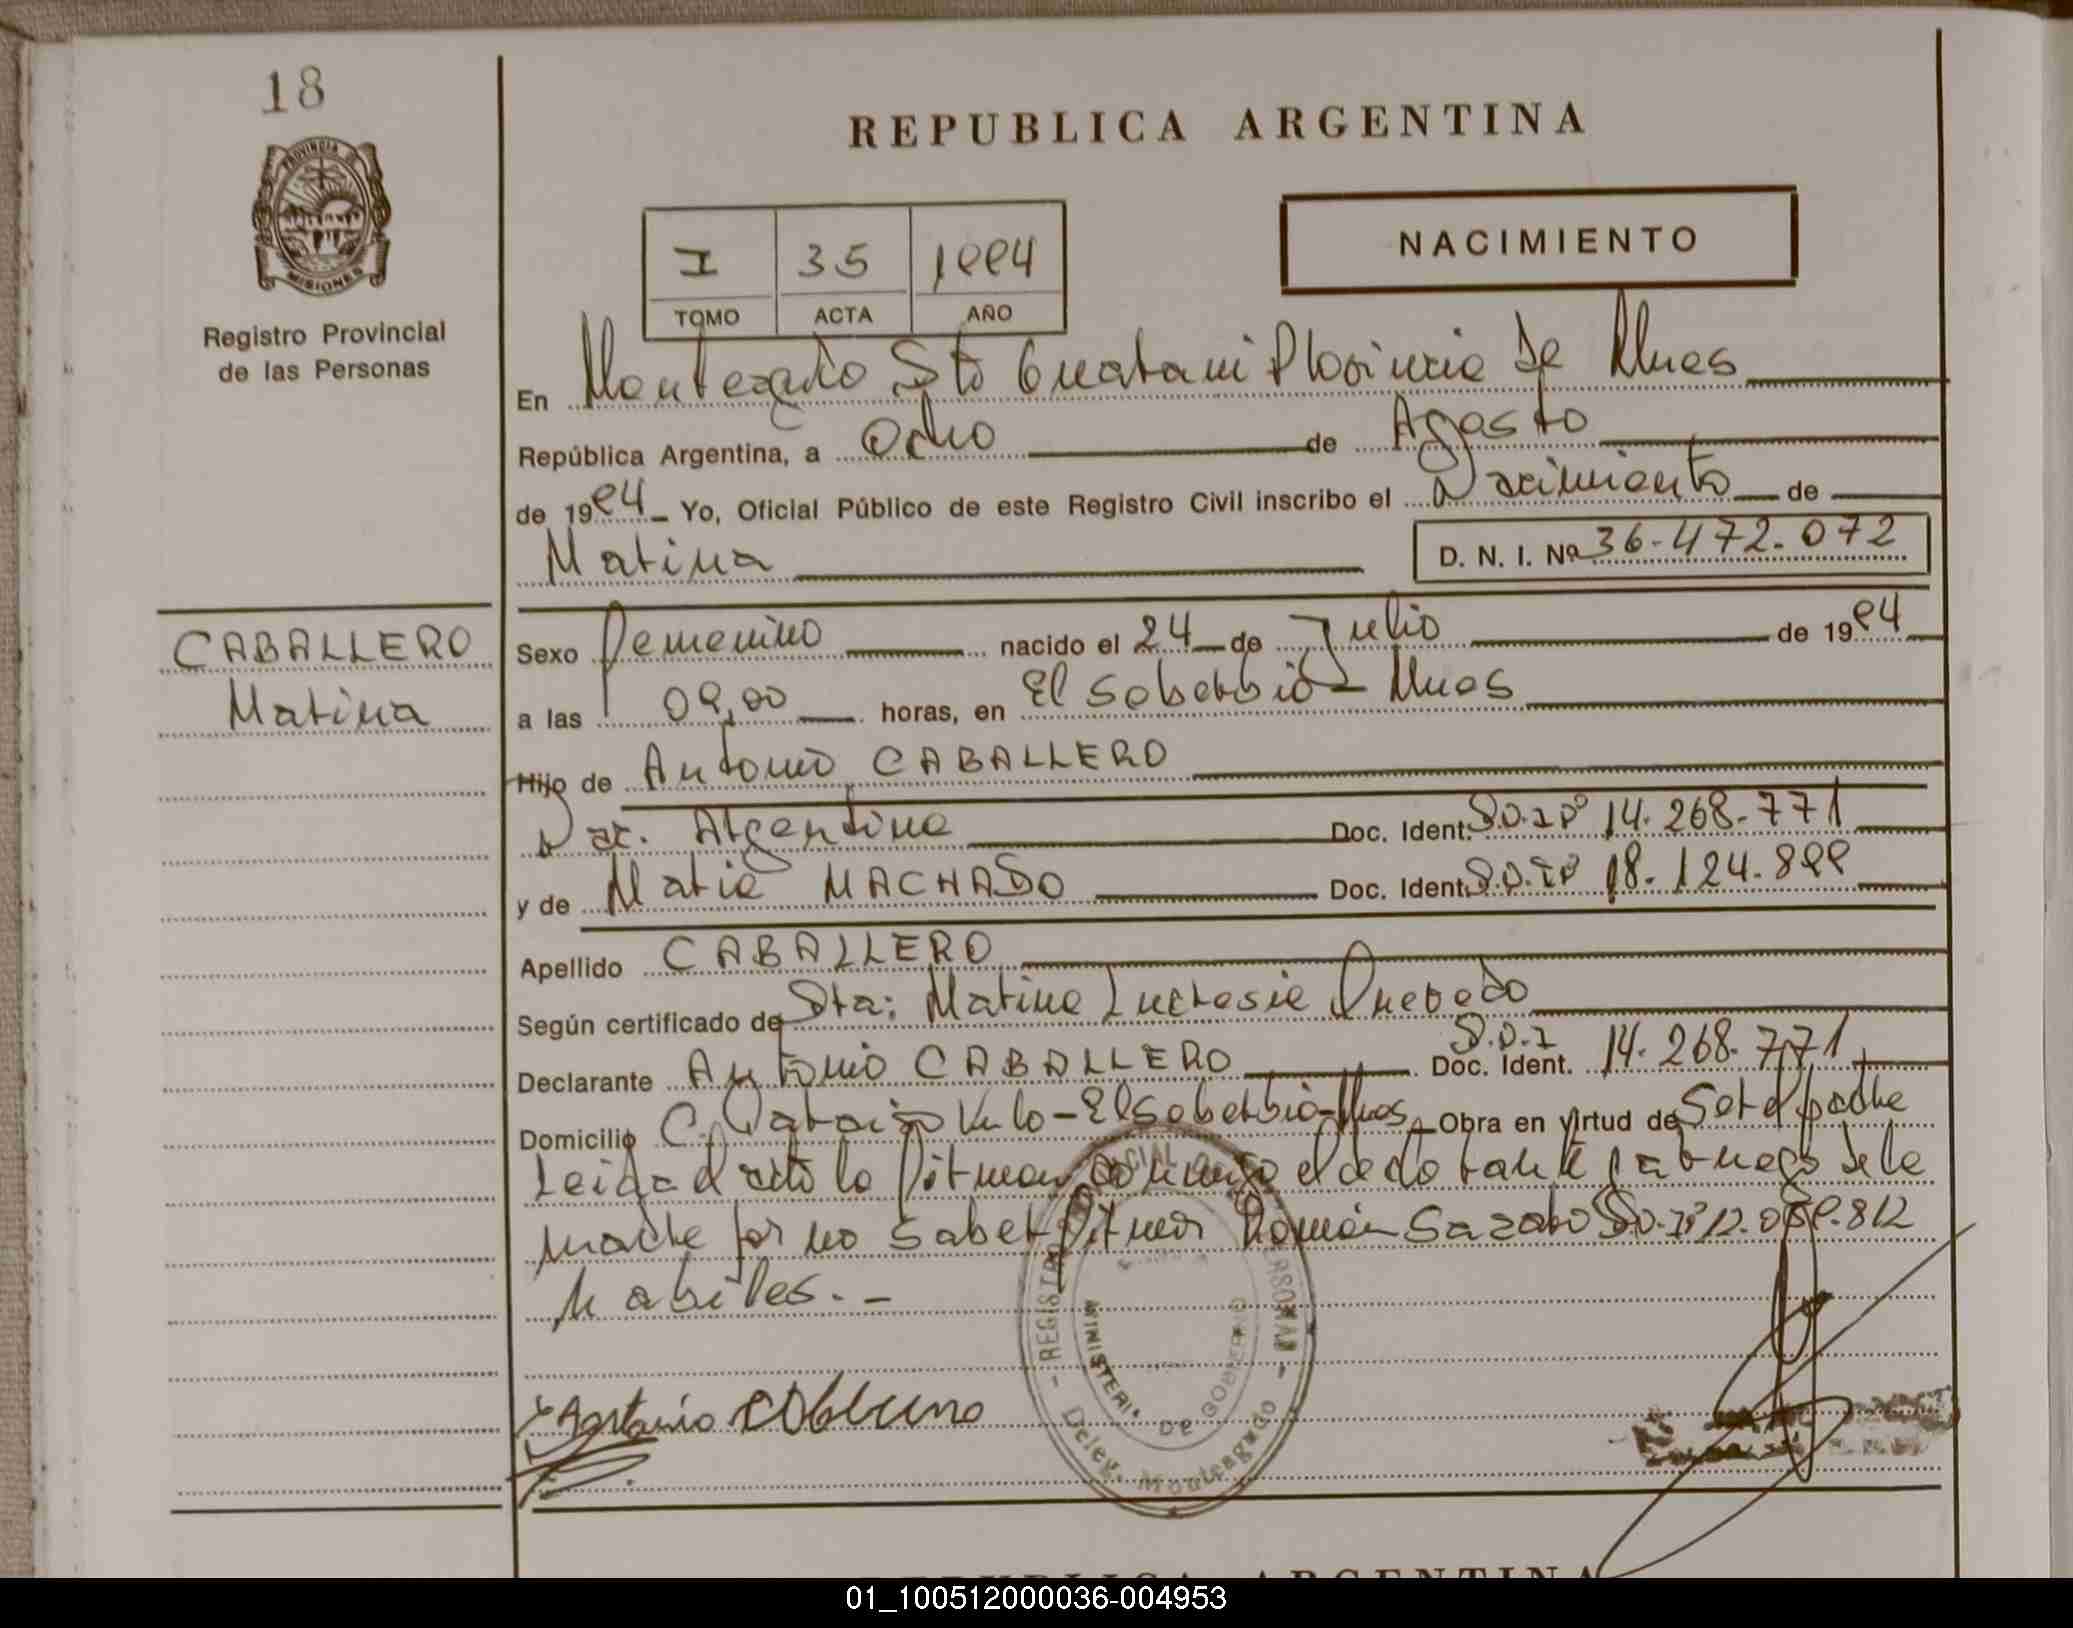 18
REPUBLICA ARGENTINA
PROVINCIA DE
MISIONES
Registro Provincial
de las Personas
I 35 1994
TOMO ACTA AÑO
NACIMIENTO
En Monteagudo Dto Guarani Provincia de Mnes
República Argentina, a Ocho de Agosto
de 1994 Yo, Oficial Público de este Registro Civil inscribo el Nacimiento de
Marina D. N. I. Nº 36-472.072
CABALLERO
Marina
Sexo Femenino nacido el 24 de Julio de 1994
a las 09,00 horas, en El Soberbio - Mnes
Hijo de Antonio CABALLERO
Nac. Argentina Doc. Ident. D.N.I Nº 14.268.771
y de Maria MACHADO Doc. Ident. D.N.I Nº 18.124.899
Apellido CABALLERO
Según certificado de Dra: Marina Lucresia Quevedo
Declarante Antonio CABALLERO D.N.I Doc. Ident. 14.268.771
Domicilio C. Paraiso - El Soberbio - Mnes Obra en virtud de Ser el padre
Leida el acta la firman conmigo el declarante a ruego de la
madre por no saber firmar Román D.N.I Nº
habiles. -
Antonio
REGISTRO PROVINCIAL DE LAS PERSONAS
MINISTERIO DE GOBIERNO
Deleg. Monteagudo
REPUBLICA ARGENTINA
01_100512000036-004953